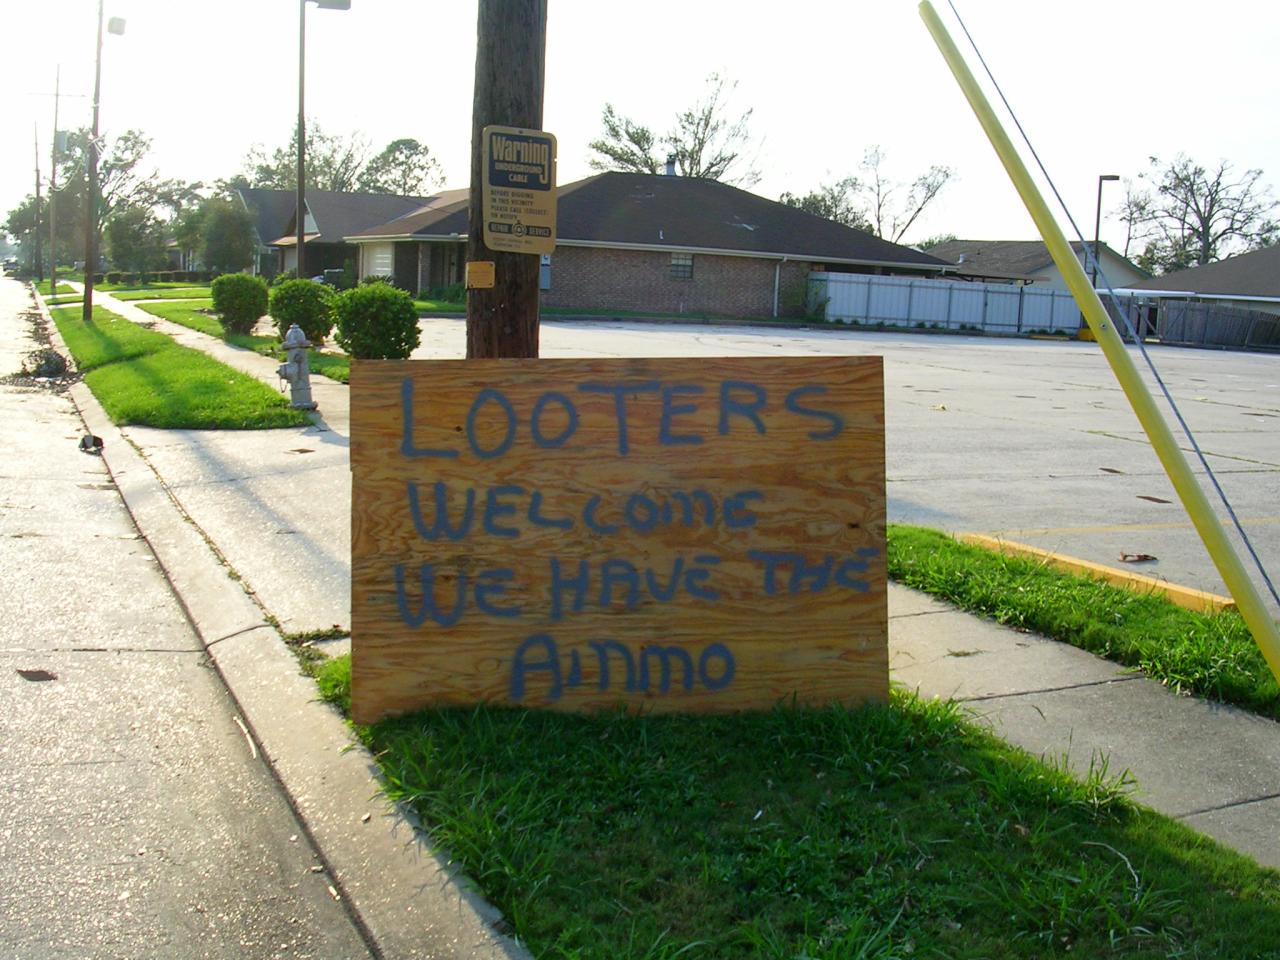 Warning
UNDERGROUND
CABLE
BEFORE DIGGING
IN THIS VICINITY
PLEASE CALL (COLLECT)
REPAIR SERVICE
LOOTERS
WELCOME
WE HAVE THE
AMMO